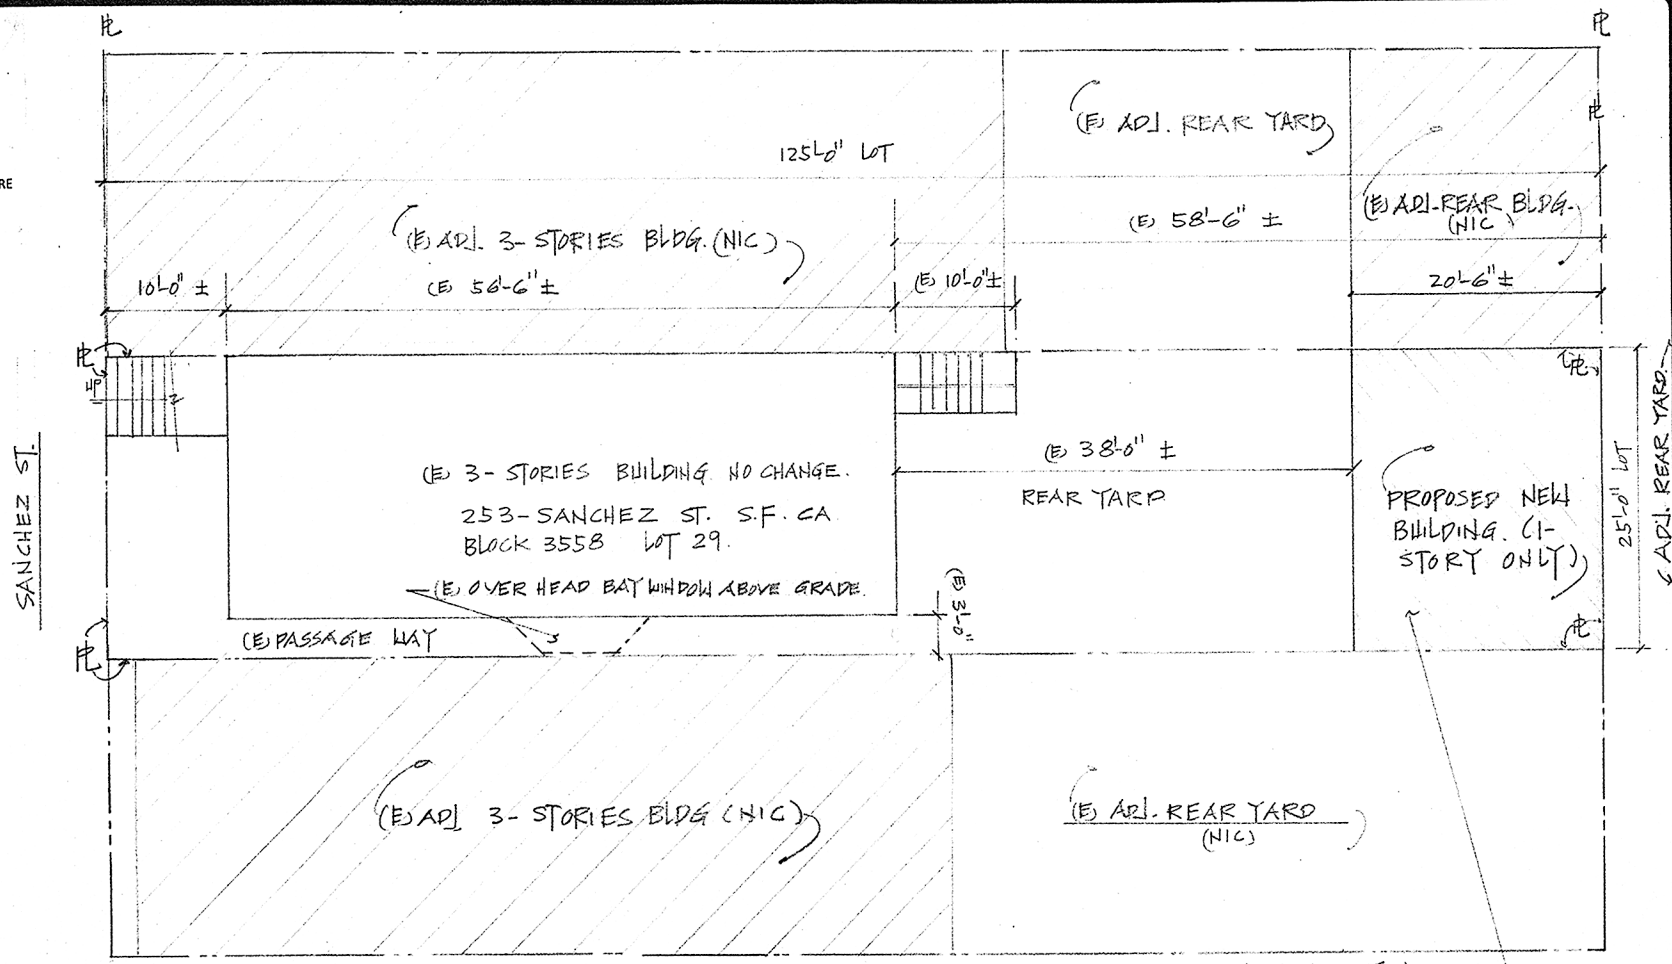 PL
PL
RE
(E) ADJ. REAR YARD
PL
125'-0" LOT
(E) ADJ. REAR BLDG.
(NIC)
(E) 58'-6" ±
(E) ADJ. 3-STORIES BLDG. (NIC)
10'-0" ±
(E) 56'-6" ±
(E) 10'-0" ±
20'-6" ±
PL
UP
PL
SANCHEZ ST.
(E) 3-STORIES BUILDING NO CHANGE.
253-SANCHEZ ST. S.F. CA
BLOCK 3558 LOT 29.
(E) OVER HEAD BAY WINDOW ABOVE GRADE.
(E) 38'-0" ±
REAR YARD
PROPOSED NEW
BUILDING. (1-
STORY ONLY)
25'-0" LOT
ADJ. REAR YARD.
(E) 3'-0"
(E) PASSAGE WAY
PL
PL
(E) ADJ 3-STORIES BLDG (NIC)
(E) ADJ. REAR YARD
(NIC)